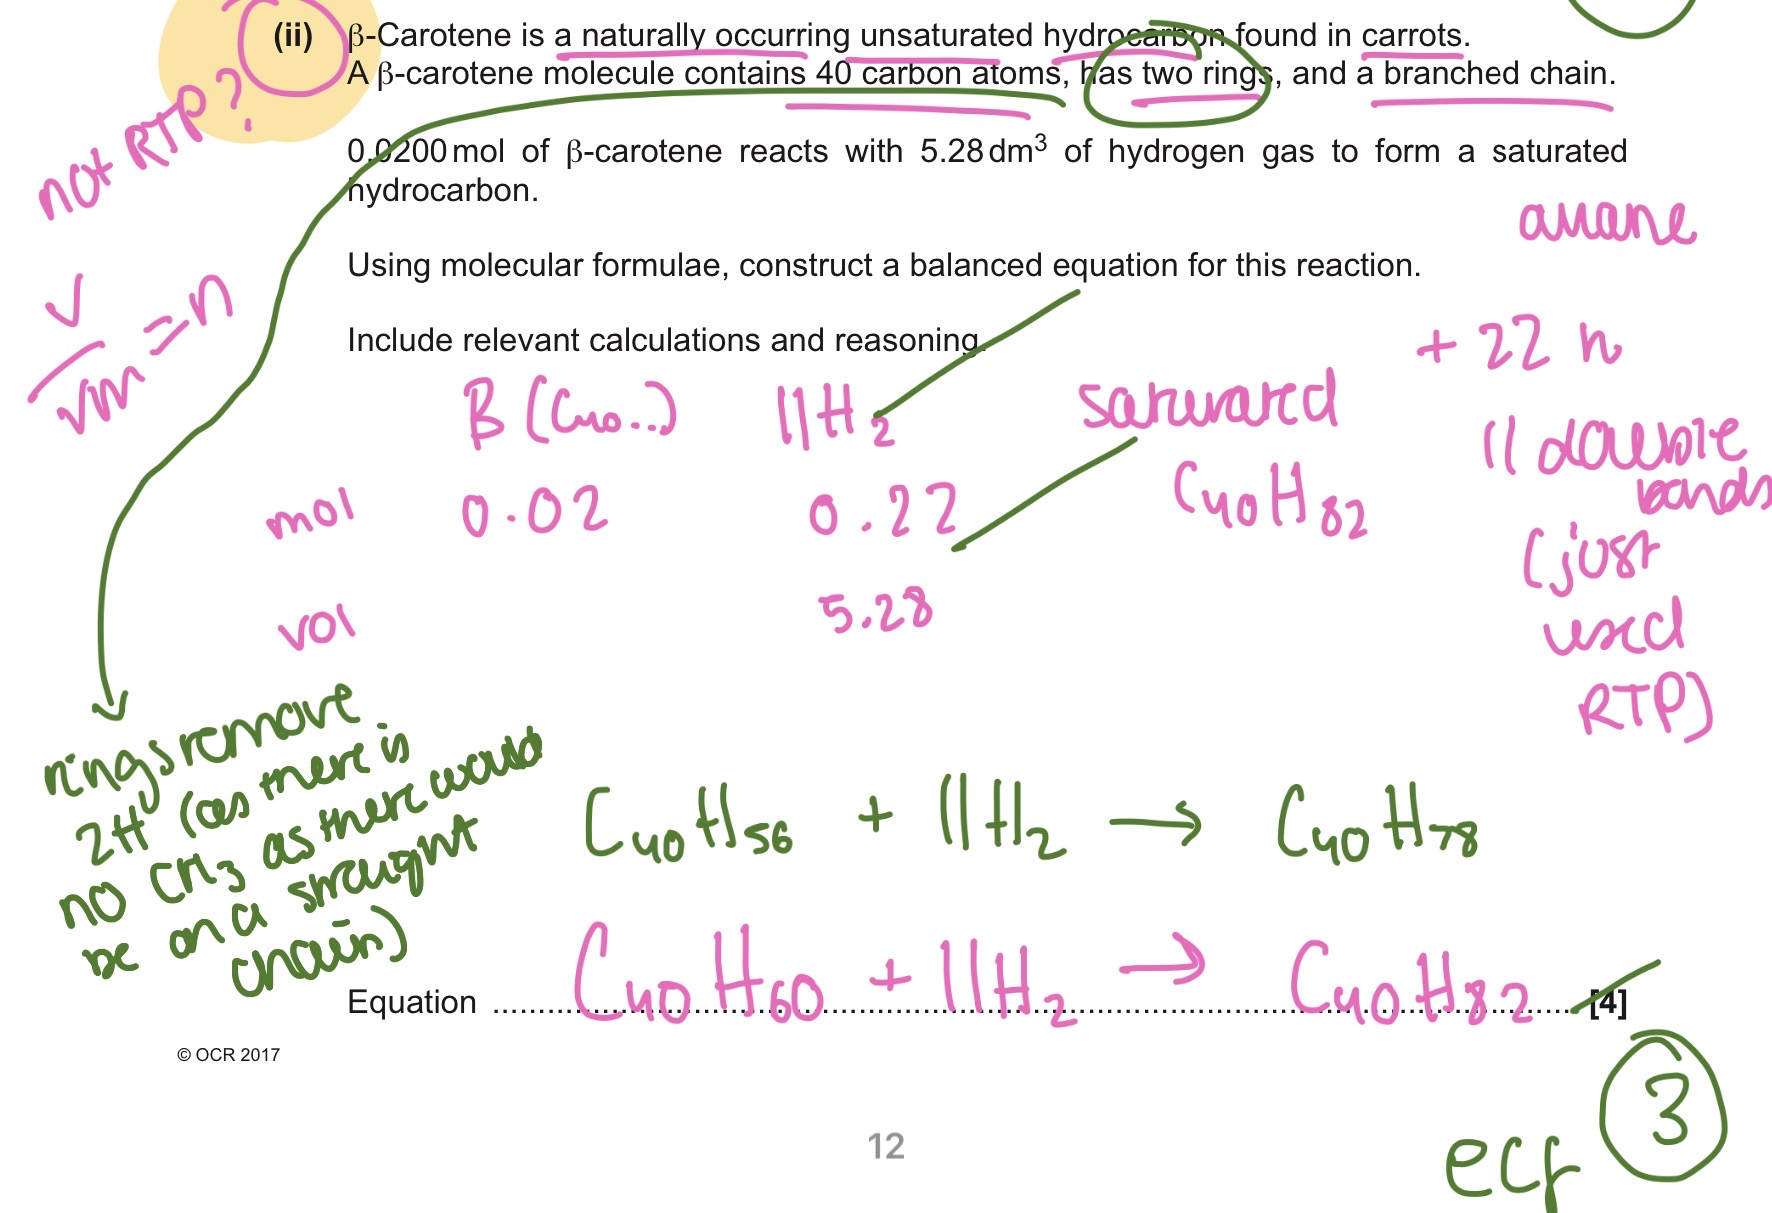 (ii) β-Carotene is a naturally occurring unsaturated hydrocarbon found in carrots.
A β-carotene molecule contains 40 carbon atoms, has two rings, and a branched chain.
not RTP?
0.0200 mol of β-carotene reacts with 5.28 dm³ of hydrogen gas to form a saturated
hydrocarbon.
alkane
Using molecular formulae, construct a balanced equation for this reaction.
v/vm = n
Include relevant calculations and reasoning.
+ 22 h
B (C₄₀..) 11H₂ saturated
11 double
bonds
mol 0.02 0.22 C₄₀H₈₂
(just
used
RTP)
vol 5.28
rings remove
2H (as there is
no CH₃ as there would
be on a straight
chain)
C₄₀H₅₆ + 11H₂ → C₄₀H₇₈
Equation C₄₀H₆₀ + 11H₂ → C₄₀H₈₂ [4]
© OCR 2017
3
12
ecf